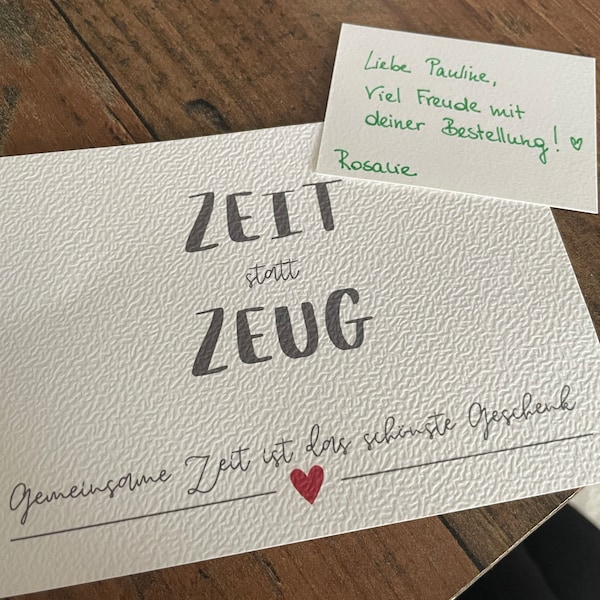 Liebe Pauline,
viel Freude mit
deiner Bestellung! ♡
Rosalie
ZEIT
statt
ZEUG
Gemeinsame Zeit ist das schönste Geschenk